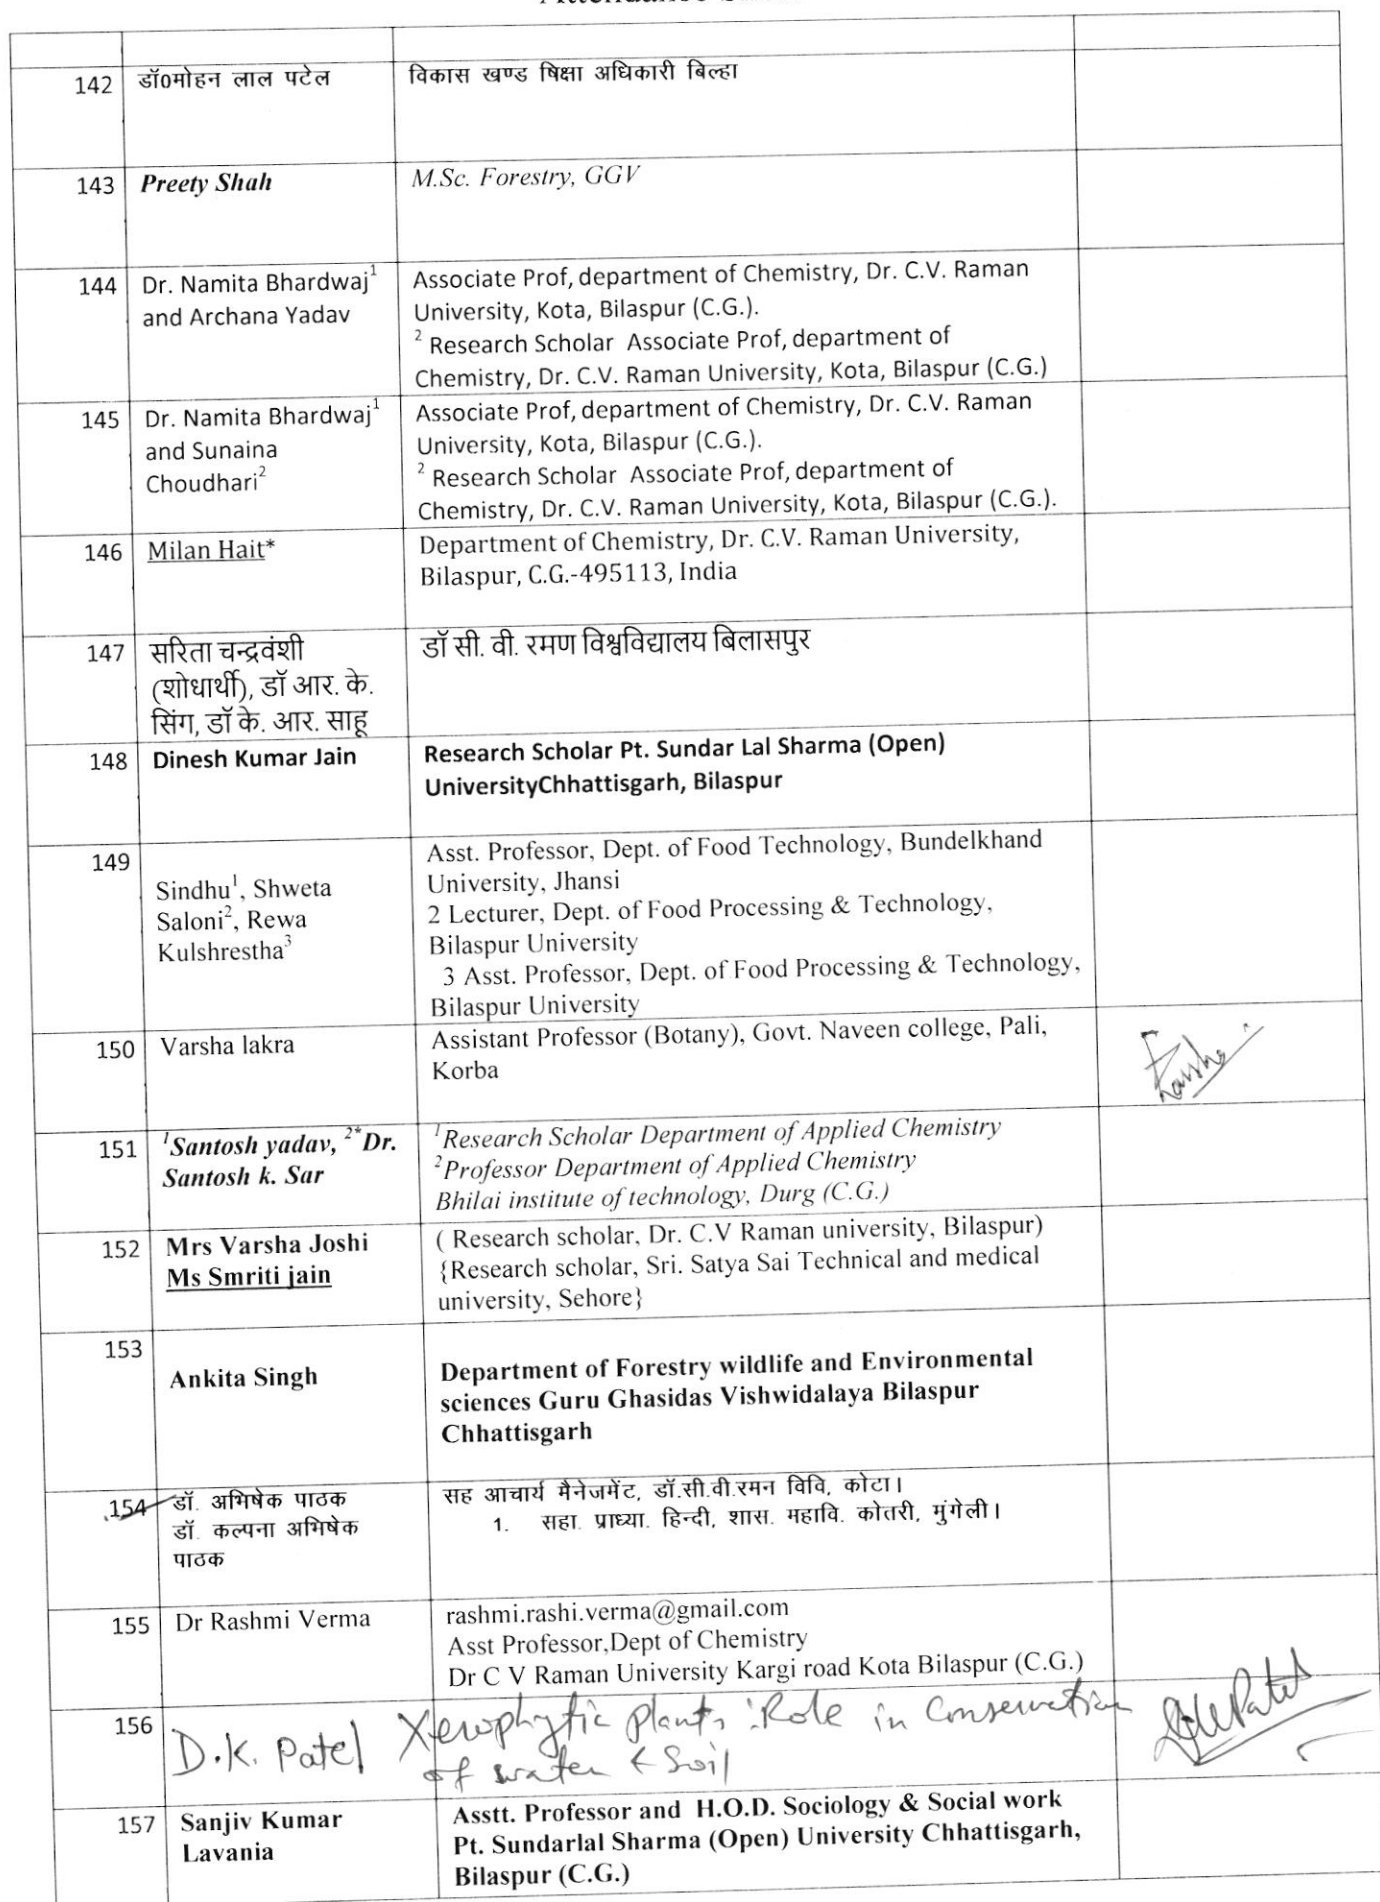 142 डॉ0मोहन लाल पटेल विकास खण्ड षिक्षा अधिकारी बिल्हा
143 Preety Shah M.Sc. Forestry, GGV
144 Dr. Namita Bhardwaj1 Associate Prof, department of Chemistry, Dr. C.V. Raman
and Archana Yadav University, Kota, Bilaspur (C.G.).
2 Research Scholar Associate Prof, department of
Chemistry, Dr. C.V. Raman University, Kota, Bilaspur (C.G.)
145 Dr. Namita Bhardwaj1 Associate Prof, department of Chemistry, Dr. C.V. Raman
and Sunaina University, Kota, Bilaspur (C.G.).
Choudhari2 2 Research Scholar Associate Prof, department of
Chemistry, Dr. C.V. Raman University, Kota, Bilaspur (C.G.).
146 Milan Hait* Department of Chemistry, Dr. C.V. Raman University,
Bilaspur, C.G.-495113, India
147 सरिता चन्द्रवंशी डॉ सी. वी. रमण विश्वविद्यालय बिलासपुर
(शोधार्थी), डॉ आर. के.
सिंग, डॉ के. आर. साहू
148 Dinesh Kumar Jain Research Scholar Pt. Sundar Lal Sharma (Open)
UniversityChhattisgarh, Bilaspur
149 Asst. Professor, Dept. of Food Technology, Bundelkhand
Sindhu1, Shweta University, Jhansi
Saloni2, Rewa 2 Lecturer, Dept. of Food Processing & Technology,
Kulshrestha3 Bilaspur University
3 Asst. Professor, Dept. of Food Processing & Technology,
Bilaspur University
150 Varsha lakra Assistant Professor (Botany), Govt. Naveen college, Pali,
Korba
151 1Santosh yadav, 2*Dr. 1Research Scholar Department of Applied Chemistry
Santosh k. Sar 2Professor Department of Applied Chemistry
Bhilai institute of technology, Durg (C.G.)
152 Mrs Varsha Joshi ( Research scholar, Dr. C.V Raman university, Bilaspur)
Ms Smriti jain {Research scholar, Sri. Satya Sai Technical and medical
university, Sehore}
153 Ankita Singh Department of Forestry wildlife and Environmental
sciences Guru Ghasidas Vishwidalaya Bilaspur
Chhattisgarh
154 डॉ. अभिषेक पाठक सह आचार्य मैनेजमेंट, डॉ.सी.वी.रमन विवि, कोटा।
डॉ. कल्पना अभिषेक 1. सहा. प्राध्या. हिन्दी, शास. महावि. कोतरी, मुंगेली।
पाठक
155 Dr Rashmi Verma rashmi.rashi.verma@gmail.com
Asst Professor,Dept of Chemistry
Dr C V Raman University Kargi road Kota Bilaspur (C.G.)
156 D.K. Patel Xerophytic plants : Role in Conservation
of water & Soil
157 Sanjiv Kumar Asstt. Professor and H.O.D. Sociology & Social work
Lavania Pt. Sundarlal Sharma (Open) University Chhattisgarh,
Bilaspur (C.G.)